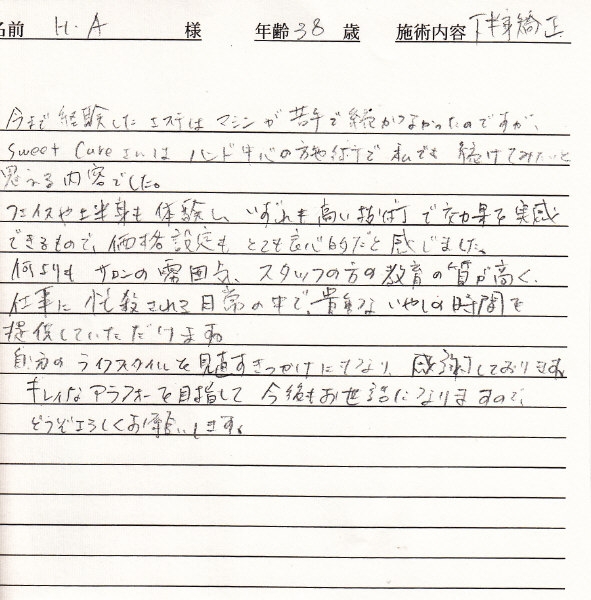 名前 H.A 様 年齢 38 歳 施術内容 下半身矯正
今まで経験したエステはマシンが苦手で続かなかったのですが、
Sweet Cureさんはハンド中心の施術で私でも続けてみたいと
思える内容でした。
フェイスや上半身も体験し、いずれも高い技術で効果を実感
できるもので、価格設定もとても良心的だと感じました。
何よりもサロンの雰囲気、スタッフの方の教育の質が高く、
仕事に忙殺される日常の中で、貴重ないやしの時間を
提供していただけます。
自分のライフスタイルを見直すきっかけにもなり、感謝しております。
キレイなアラフォーを目指して今後もお世話になりますので、
どうぞよろしくお願いします。